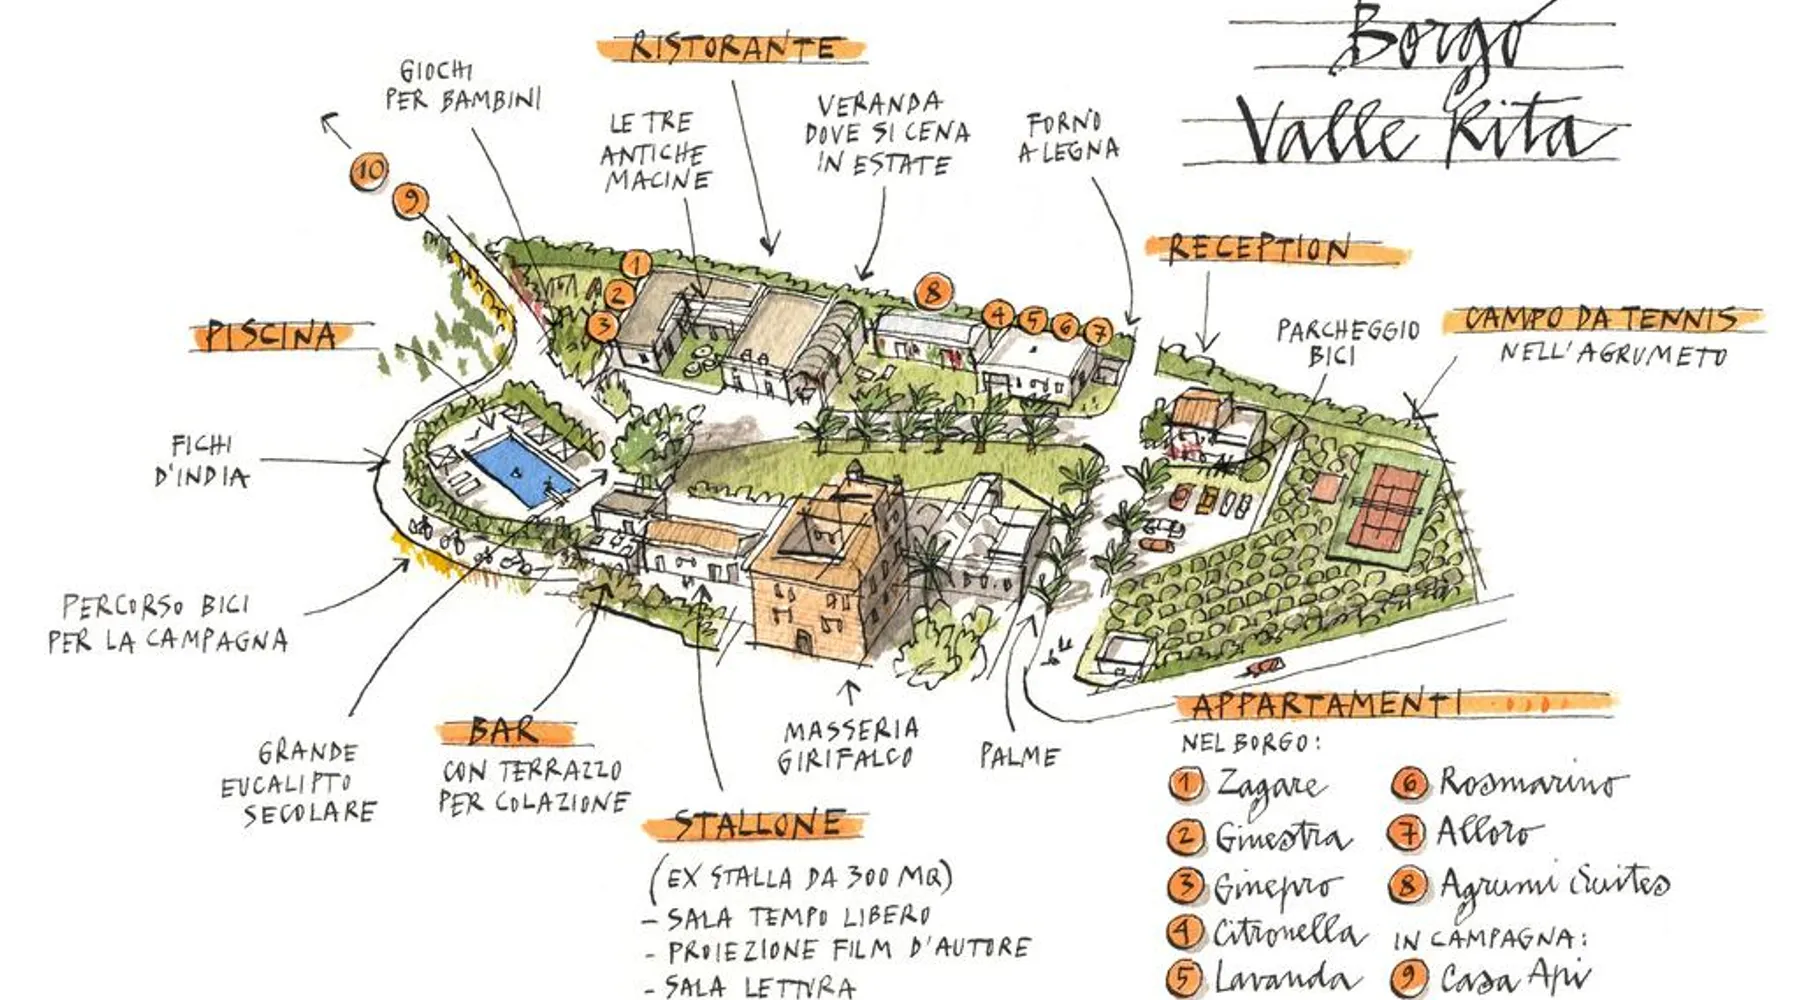 Borgo
Valle Rita
RISTORANTE
GIOCHI
PER BAMBINI
LE TRE
ANTICHE
MACINE
VERANDA
DOVE SI CENA
IN ESTATE
FORNO
A LEGNA
10
9
RECEPTION
1
2
3
8
4 5 6 7
PISCINA
PARCHEGGIO
BICI
CAMPO DA TENNIS
NELL'AGRUMETO
FICHI
D'INDIA
PERCORSO BICI
PER LA CAMPAGNA
GRANDE
EUCALIPTO
SECOLARE
BAR
CON TERRAZZO
PER COLAZIONE
MASSERIA
GIRIFALCO
PALME
STALLONE
(EX STALLA DA 300 MQ)
- SALA TEMPO LIBERO
- PROIEZIONE FILM D'AUTORE
- SALA LETTURA
APPARTAMENTI
NEL BORGO:
1 Zagare
2 Ginestra
3 Ginepro
4 Citronella
5 Lavanda
6 Rosmarino
7 Alloro
8 Agrumi Suites
IN CAMPAGNA:
9 Casa Api